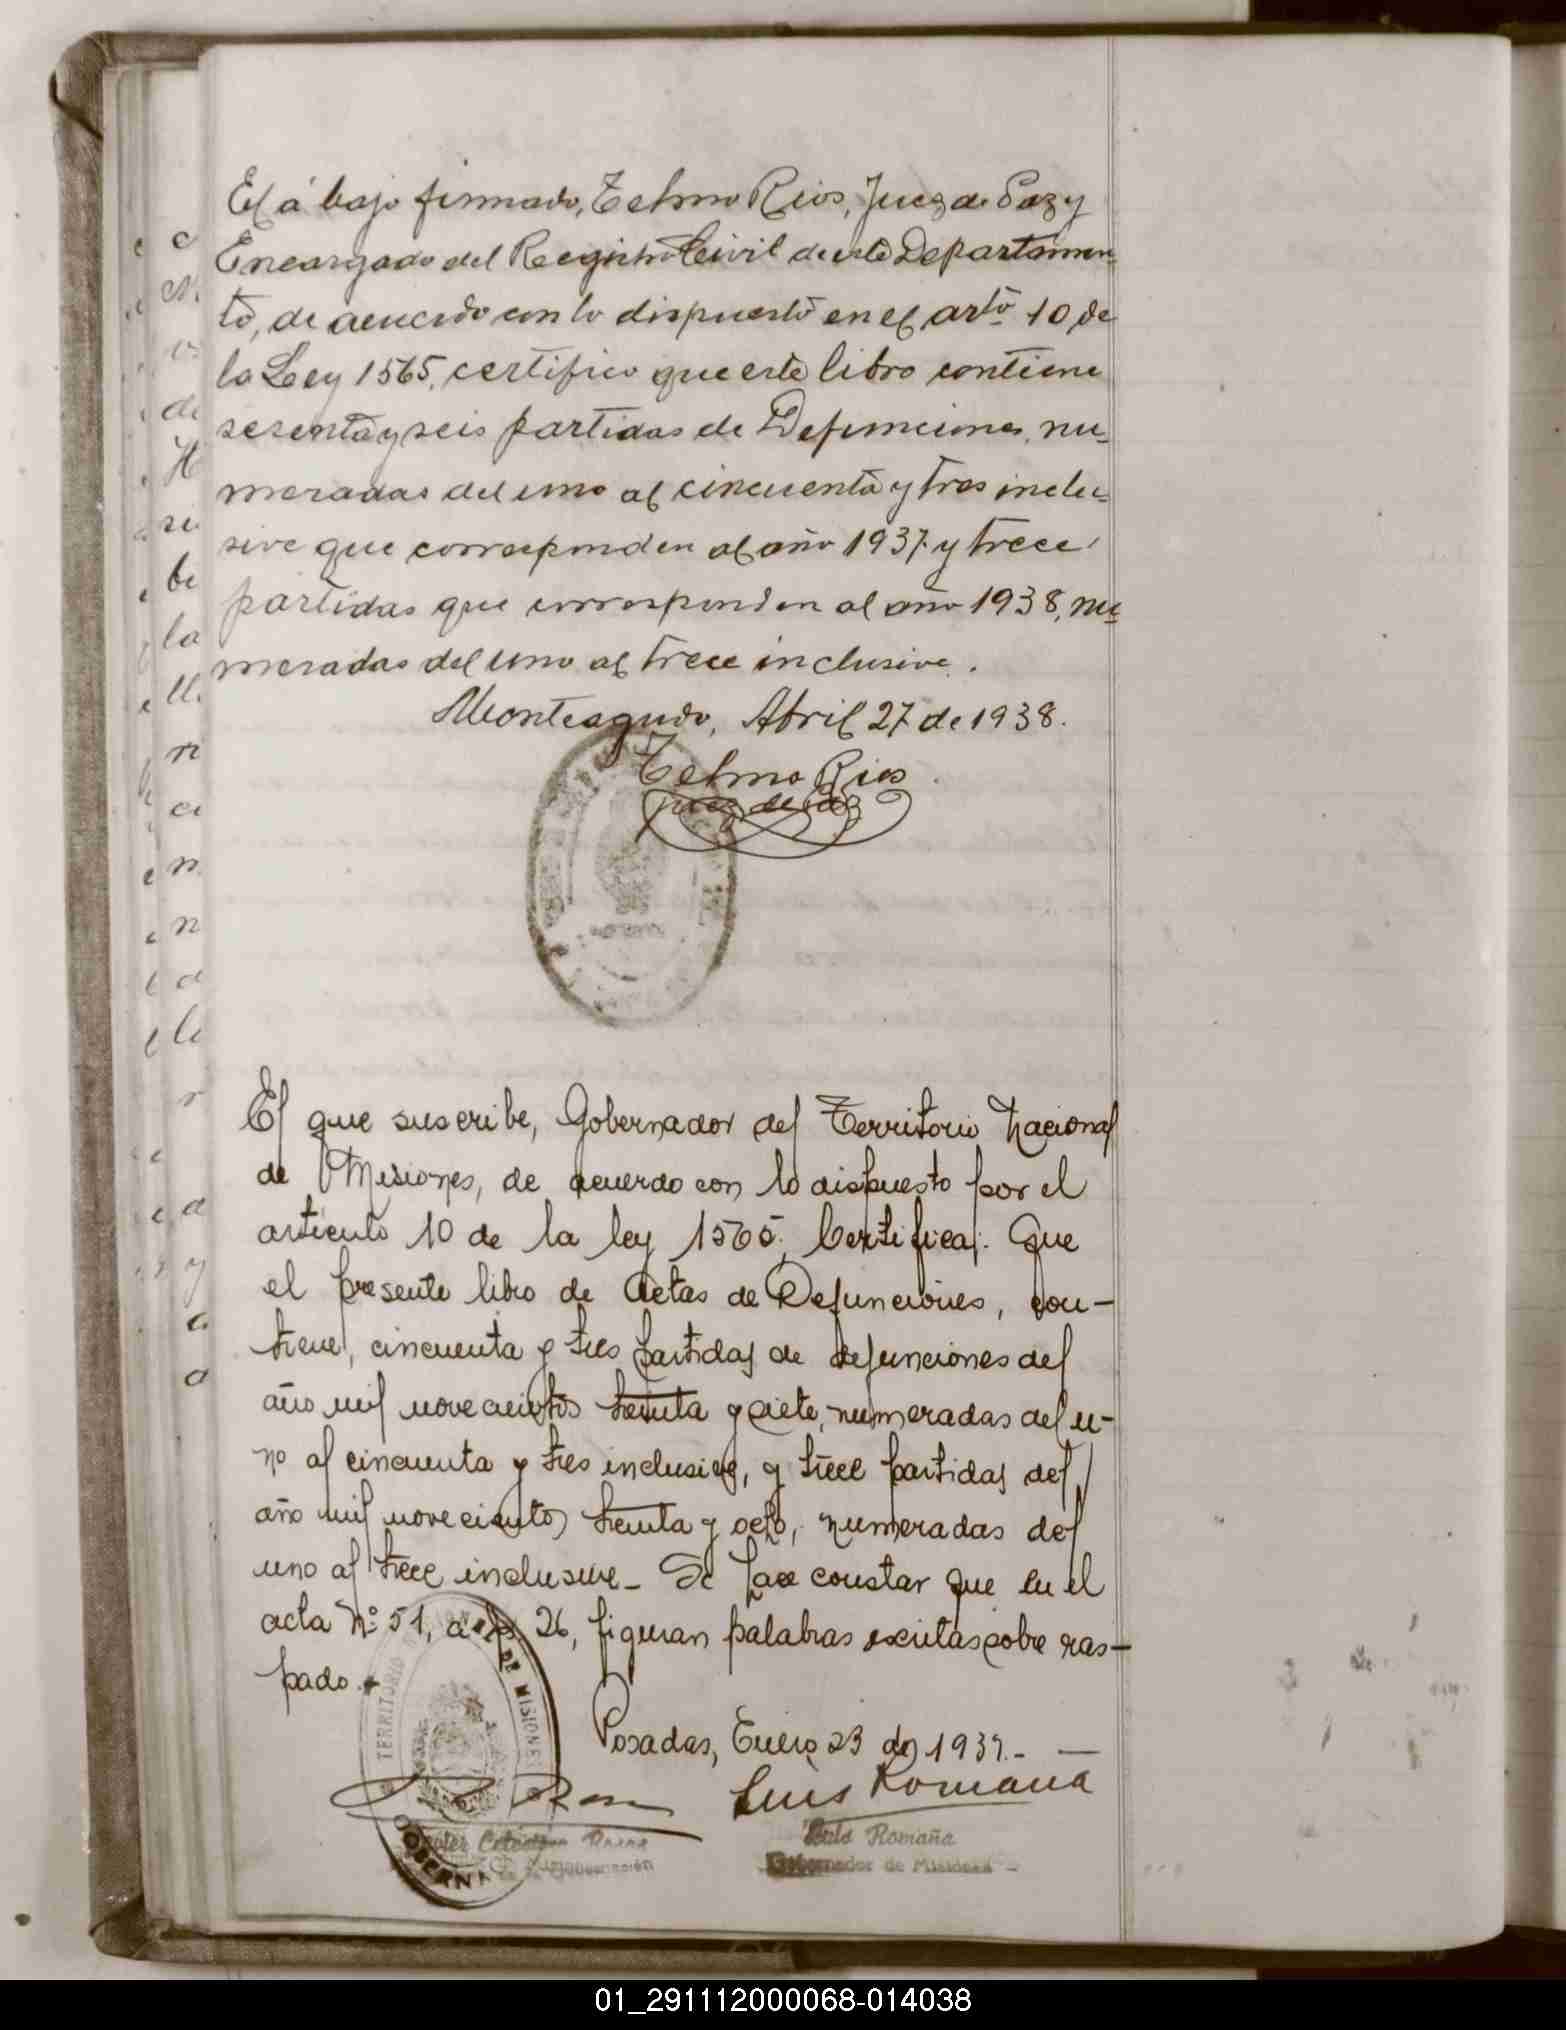 El á bajo firmado, Telmo Rios, Juez de Paz y
Encargado del Registro Civil de este Departamen-
to, de acuerdo con lo dispuesto en el arto 10 de
la Ley 1565, certifico que este libro contiene
sesenta y seis partidas de Defunciones, nu-
meradas del uno al cincuenta y tres inclu-
sive que corresponden al año 1937 y trece
partidas que corresponden al año 1938, nu-
meradas del uno al trece inclusive.
Monteagudo, Abril 27 de 1938.
Telmo Rios
Juez de Paz
El que suscribe, Gobernador del Territorio Nacional
de Misiones, de acuerdo con lo dispuesto por el
artículo 10 de la ley 1565, Certifica: Que
el presente libro de Actas de Defunciones, con-
tiene, cincuenta y tres partidas de defunciones del
año mil novecientos treinta y siete, numeradas del u-
no al cincuenta y tres inclusive, y trece partidas del
año mil novecientos treinta y ocho, numeradas del
uno al trece inclusive - Se hace constar que en el
acta No 51, a fs 26, figuran palabras escritas sobre ras-
pado.-
Posadas, Enero 23 de 1939.-
TERRITORIO DE MISIONES
GOBERNA
Luis Romaña
Luis Romaña
Gobernador de Misiones
01_291112000068-014038